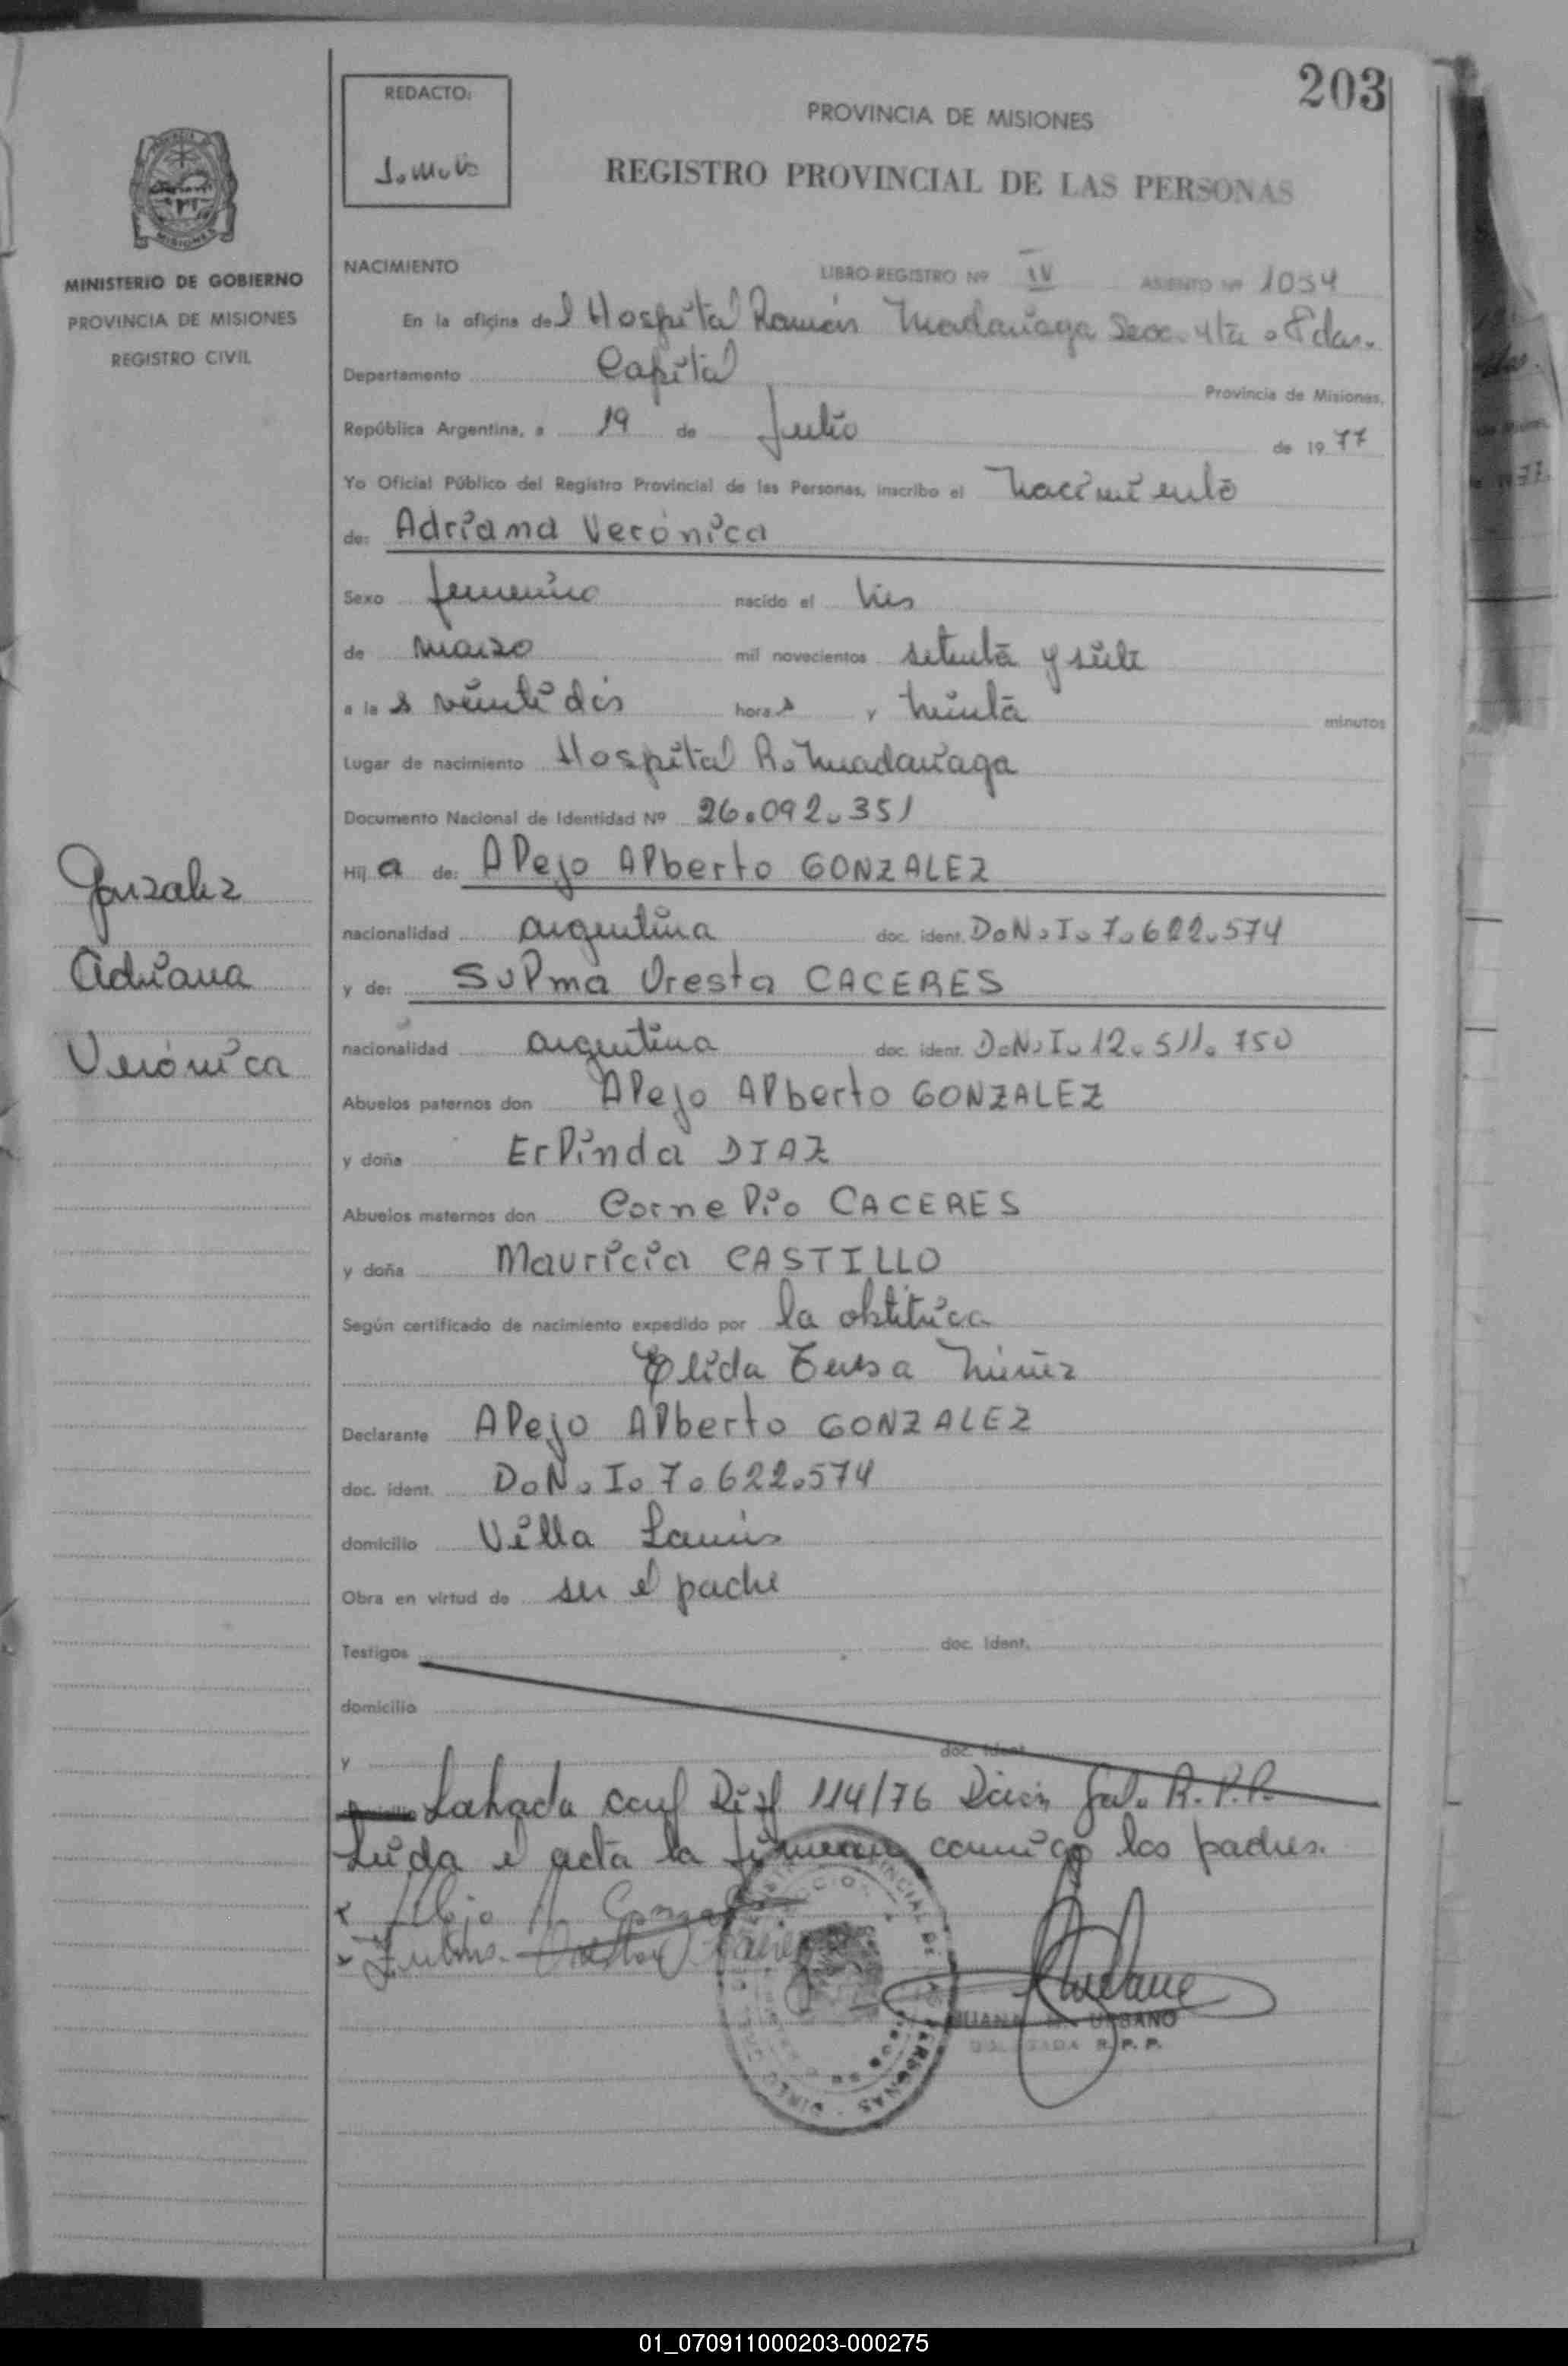 203
REDACTO:
PROVINCIA DE MISIONES
REGISTRO PROVINCIAL DE LAS PERSONAS
MISIONES
MINISTERIO DE GOBIERNO
PROVINCIA DE MISIONES
REGISTRO CIVIL
NACIMIENTO LIBRO REGISTRO Nº IV ASIENTO Nº 1054
En la oficina del Hospital Ramón Madariaga Secc. 4ta. Pdas.
Departamento Capital Provincia de Misiones,
República Argentina, a 19 de Julio de 1977
Yo Oficial Público del Registro Provincial de las Personas, inscribo el nacimiento
de: Adriana Verónica
Sexo femenino nacido el tres
de marzo mil novecientos setenta y siete
a las veintidós horas y treinta minutos
Lugar de nacimiento Hospital R. Madariaga
Documento Nacional de Identidad Nº 26.092.351
Hija de: Alejo Alberto GONZALEZ
nacionalidad argentina doc. ident. D.N.I. 7.622.574
y de: Sulma Oresta CACERES
nacionalidad argentina doc. ident. D.N.I. 12.511.750
Abuelos paternos don Alejo Alberto GONZALEZ
y doña Erlinda DIAZ
Abuelos maternos don Cornelio CACERES
y doña Mauricia CASTILLO
Según certificado de nacimiento expedido por la obstétrica
Elida Teresa Núñez
Declarante Alejo Alberto GONZALEZ
doc. ident. D.N.I. 7.622.574
domicilio Villa Lanús
Obra en virtud de ser el padre
Testigos doc. ident.
domicilio
y doc. ident.
Labrada conf Disp 114/76 Dción Gral. R.P.P.
Leída el acta la firman conmigo los padres.
Alejo A. Gonzalez
Zulma Oresta Caceres
JUANA URBANO
DELEGADA R. P. P.
Gonzalez
Adriana
Verónica
01_070911000203-000275